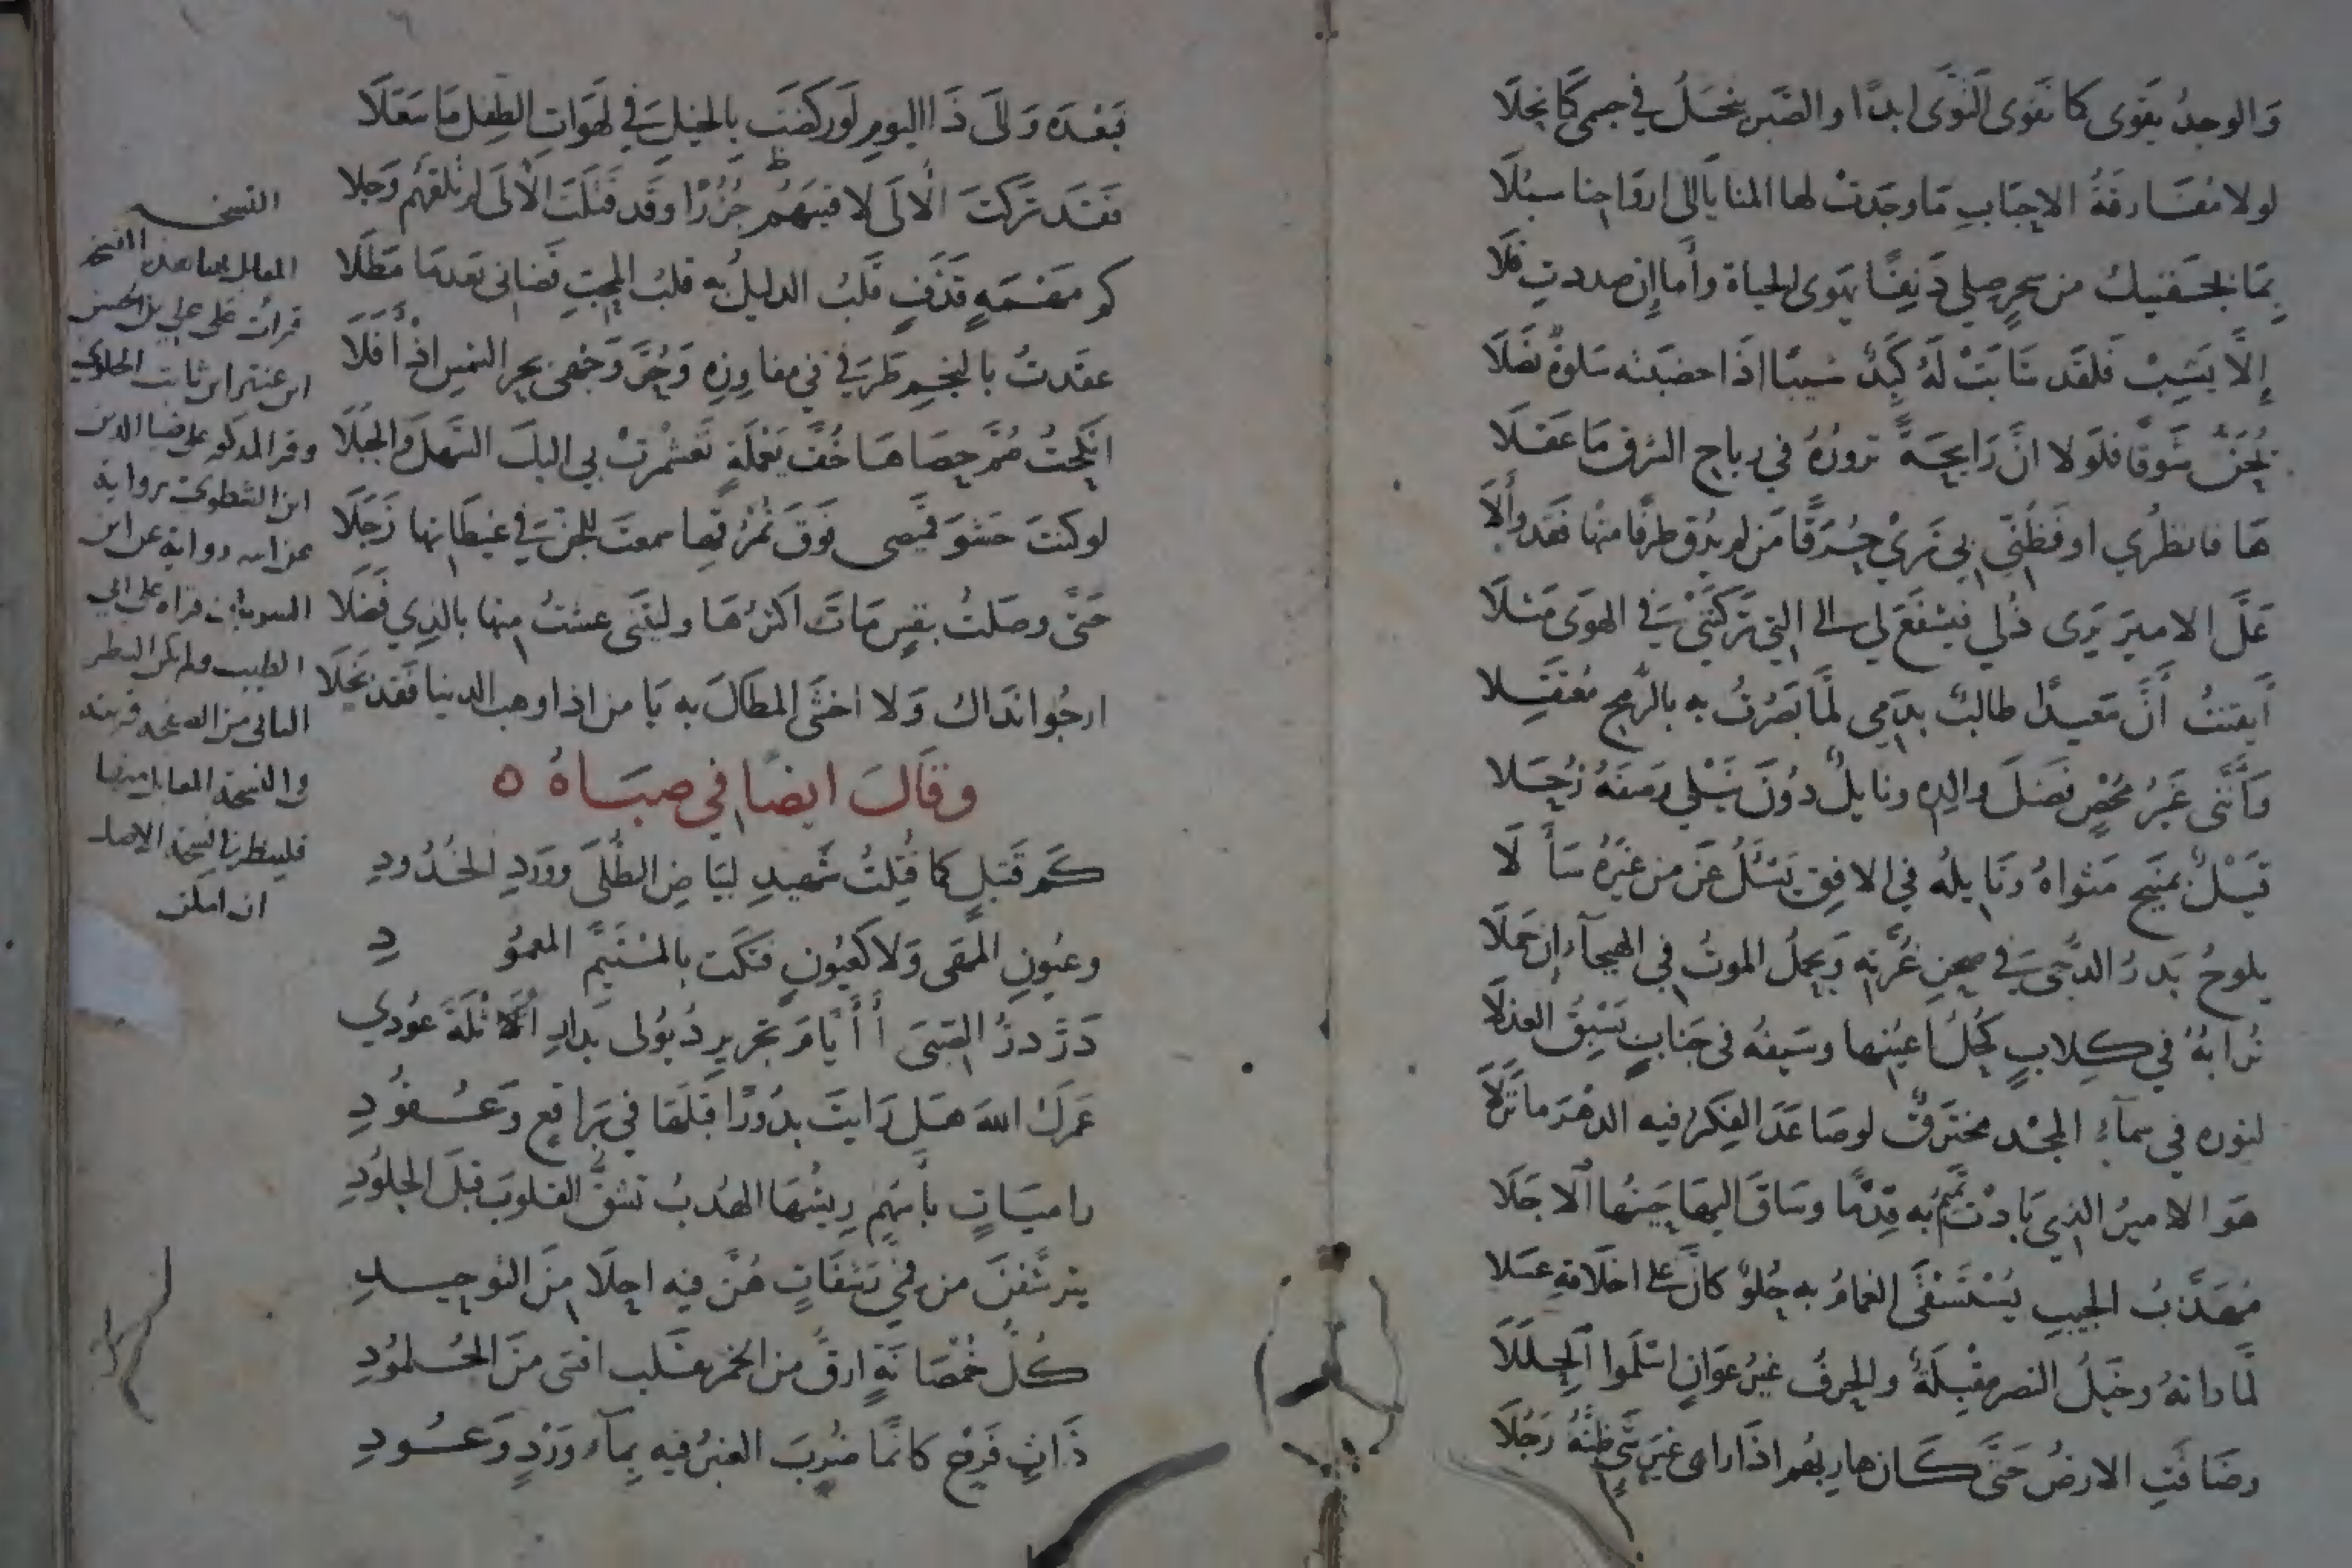 وَالوجدُ يقوَى كما تقوَى النّوَى ابدًا والصّبر ينحَلُ في جسمي كما نحلَا
لولا مُفَارقَةُ الاحبَابِ مَا وجَدَتْ لها المنايَا الى اروَاحنا سبُلَا
بِمَا بجَفنيك من سِحرٍ صِلي دَنِفًا يهوَى الحياة وأما إن صددتِ فَلَا
إلَّا يَشِبْ فَلقَد شَابَتْ لَهُ كَبِدٌ شيبًا اذَا خضبَته سَلوةٌ نصَلَا
يُجَنُّ شَوقًا فلَولا انَّ رَايحَةً تزورُهُ في رياح الشرق مَا عَقَلَا
هَا فانظُري او فَظُنّي بي تَرَيْ حُرَقًا مَن لم يذُق طرفًا منها فَقَد وألَا
عَلَّ الاميرَ يَرَى ذُلي فيَشفَعَ لي الى التي تَركتني في الهوَى مَثلَا
أيقنتُ أنَّ سَعيدًا طالبٌ بدَمي لمَّا بَصُرتُ به بالرّمح مُعتَقِلا
وأنَّني غَيرُ مُحْصٍ فَضلَ والدِه ونايلٌ دُونَ نَيْلي وَصفَهُ زُحَلا
قَيْلٌ بمَنبِج مَثواهُ ونَايلُه في الافقِ يَسْئَلُ عَن من غيرَهُ سَأَلَا
يلوحُ بَدرُ الدُّجَى في صحنِ غُرَّتِه وَيحملُ الموتُ في الهيجآء إن حَمَلَا
تُرابُهُ في كِلابٍ كُحلُ اعيُنِها وسَيفُه في جَنابٍ يَسْبِقُ العَذلَا
لنوره في سمآءِ المجْد مخترَقٌ لو صَاعَدَ الفِكرُ فيه الدهْرَ ما نَزَلَا
هو الاميرُ الذي بَادَتْ تَميمُ به قِدْمًا وسَاقَ اليها حَينُها الأجَلَا
مُهَذَّبُ الجيبِ يُسْتَسْقَى الغمامُ به حُلوٌ كأنَّ على اخلَاقه عَسَلا
لمّا راتهُ وخَيلُ النصر مقْبِلَةٌ والحربُ غيرُ عَوَانٍ اسْلَموا الحِلَلَا
وضَاقَتِ الارضُ حَتَّى كَان هاربهُم اذَا راى غيرَ شَيءٍ ظنَّهُ رَجُلَا
فبَعْدَه وَالى ذَا اليَومِ لَو رَكضَت بالخيل في لَهوَاتِ الطِفل مَا سَعَلَا
فقَد تَرَكتَ الأُلَى لاقيتَهُم جُزُرًا وقَد قَتلتَ الأُلَى لم تلقهُم وَجلا
كم مَهمَهٍ قَذَفٍ قَلبُ الدليل به قلبُ المحبّ قضَاني بَعدمَا مَطَلَا
عقدتُ بالنجم طَرفي في مفاوِزِه وَحُرَّ وَجهي بحر الشمس اذْ أفَلَا
انكحتُ صُمَّ حصَاهَا خُفَّ يَعْمَلَةٍ تَغَشْمَرتْ بي اليكَ السَّهلَ والجبَلَا
لو كنتَ حَشوَ قميصي فوقَ نُمْرُقها سمعتَ للجنِّ في غيطَانها زَجَلَا
حَتَّى وصلتُ بنفسٍ مَاتَ اكثرُهَا وليتني عشتُ منها بالذي فَضَلَا
ارجُوا نَدَاك وَلا اخشَى المِطَالَ به يَا من اذا وهب الدنيا فقد بَخِلَا
وقَالَ ايضًا في صبَاهُ ٥
كَم قَتيلٍ كما قُتِلتُ شَهيدِ لبَيَاضِ الطُّلَى ووَردِ الخُدُودِ
وعيُونِ المَهَى وَلا كَعُيونٍ فتكَت بالمُتَيَّمِ المعمُودِ
دَرَّ دَرُّ الصِّبَى أأيَّامَ تجريرِ ذُيُولى بدَارِ أَثْلَةَ عُودِي
عَمرَك اللهَ هَل رَايتَ بدُورًا قَبلَهَا في بَراقعٍ وَعُقُودِ
رامياتٍ بأسهُمٍ رِيشُهَا الهُدبُ تشقُّ القلوبَ قبلَ الجلُودِ
يترشَّفنَ من فمي رَشَفَاتٍ هُنَّ فيه احلَا منَ التوحيدِ
كُلُّ خُمْصَانَةٍ ارقُّ من الخمر بقَلب اقسى منَ الجُلمُودِ
ذَاتِ فَرعٍ كانَّمَا ضُرِبَ العنبرُ فيه بمآء وَرْدٍ وَعُودِ
النسخه
المقابل بها هذه النسخه
قرات على علي بن الحسن
ابن عنتر ابن ثابت الحلوي
وقرا المذكور على
روايه عن ابن
قراه على ابي
الطيب
والنسخة المقابل منها
فلينظر في نسخة الاصل
ان امكن